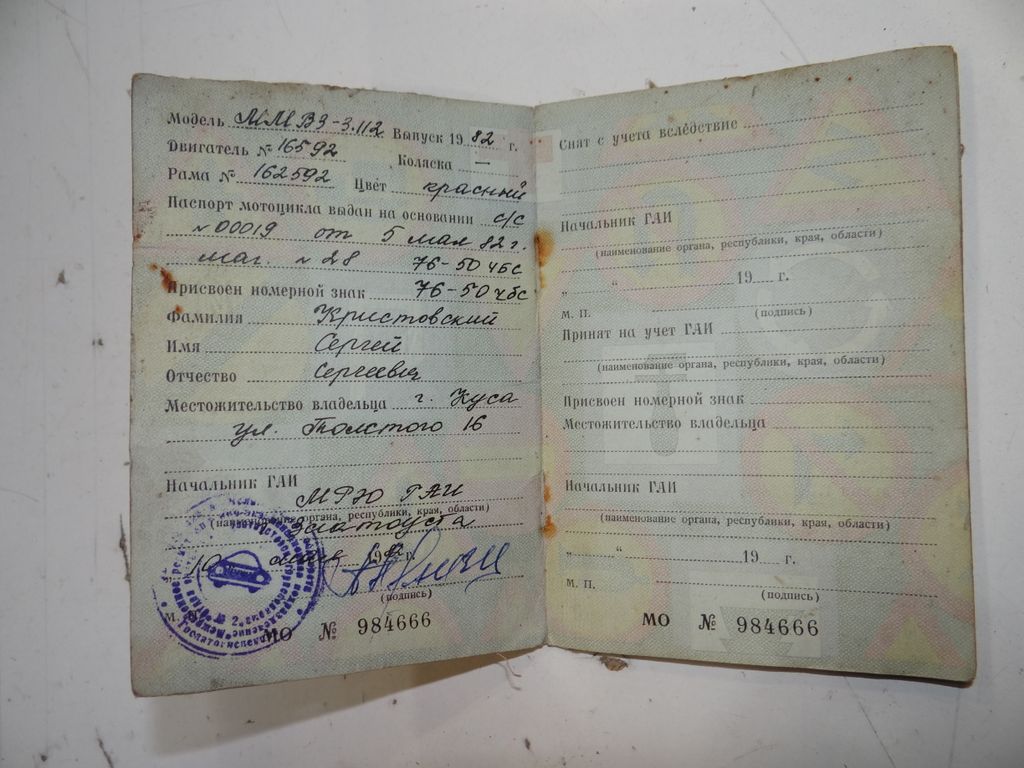 Модель ММВЗ-3.112 Выпуск 1982 г.
Двигатель № 16592 , Коляска —
Рама № 162592 Цвет красный
Паспорт мотоцикла выдан на основании с/с
№ 00019 от 5 мая 82 г.
маг. № 28 76-50 чбс
Присвоен номерной знак 76-50 чбс
Фамилия Кристовский
Имя Сергей
Отчество Сергеевич
Местожительство владельца г. Куса
ул. Толстого 16
Начальник ГАИ
МРЭО ГАИ
(наименование органа, республики, края, области)
Златоуста
10 мая 1982 г.
(подпись)
М. П.
МО № 984666
Снят с учета вследствие
Начальник ГАИ
(наименование органа, республики, края, области)
„ “ 19 г.
М. П. (подпись)
Принят на учет ГАИ
(наименование органа, республики, края, области)
Присвоен номерной знак
Местожительство владельца
Начальник ГАИ
(наименование органа, республики, края, области)
„ “ 19 г.
М. П.
(подпись)
МО № 984666